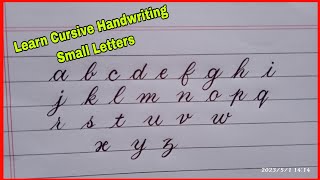 Learn Cursive Handwriting
Small Letters
a b c d e f g h i
j k l m n o p q
r s t u v w
x y z
2023/5/1 14:14